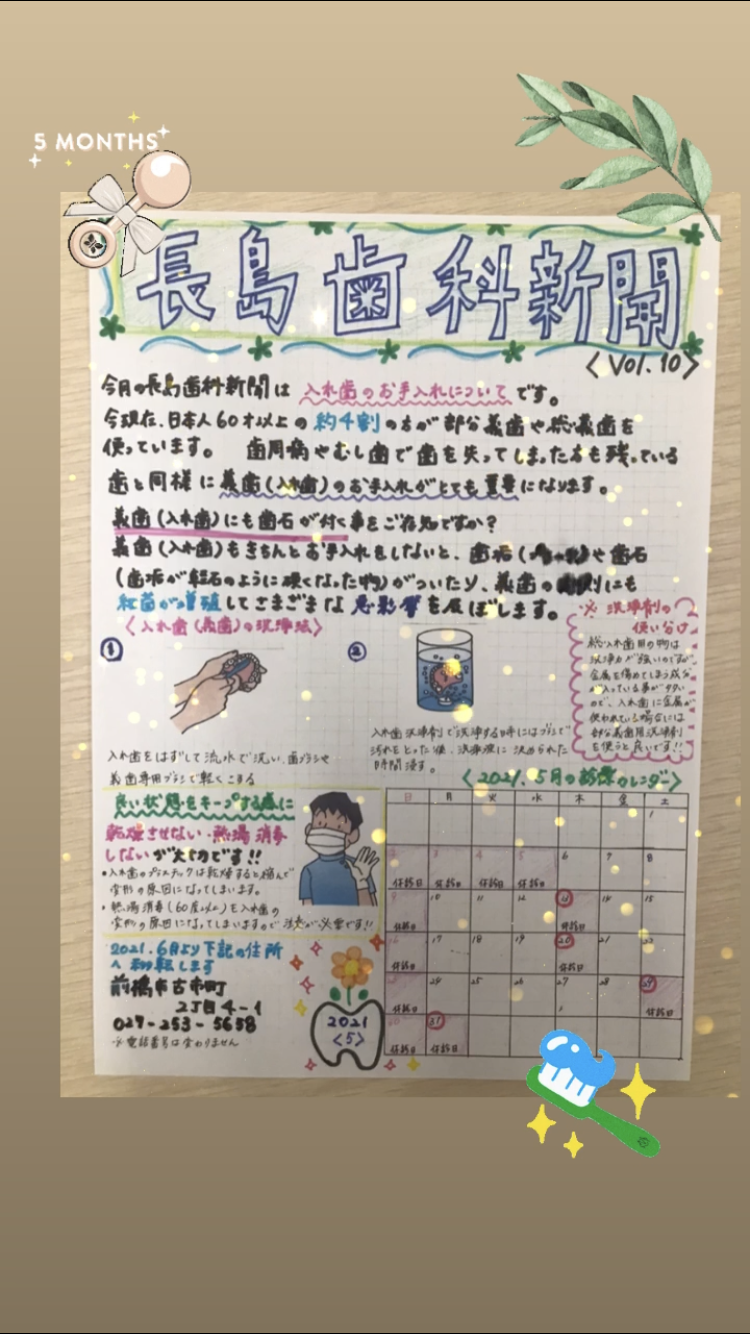 5 MONTHS
長島歯科新聞
〈Vol.10〉
今月の長島歯科新聞は 入れ歯のお手入れについて です。
今現在、日本人60才以上の 約4割の方が部分義歯や総義歯を
使っています。 歯周病やむし歯で歯を失ってしまった方も残っている
歯と同様に義歯(入れ歯)のお手入れがとても重要になります。
義歯(入れ歯)にも歯石が付く事をご存知ですか?
義歯(入れ歯)もきちんとお手入れをしないと、歯垢(や歯石
(歯垢が軽石のように硬くなった物)がついたり、義歯の にも
細菌が増殖してさまざまな 悪影響を及ぼします。
〈入れ歯(義歯)の洗浄法〉
①
入れ歯をはずして流水で洗い、歯ブラシや
義歯専用ブラシで軽くこする
②
入れ歯洗浄剤で洗浄する時にはブラシで
汚れをとった後、洗浄液に決められた
時間浸す。
※洗浄剤の
使い分け
総入れ歯用の物は
洗浄力が強いのですが
金属を傷めてしまう成分
が入っている事が多い
ので、入れ歯に金属が
使われている場合には
部分義歯用洗浄剤
を使うと良いです!!
良い状態をキープする為に
乾燥させない・熱湯消毒
しないが大切です!!
•入れ歯のプラスチックは乾燥すると縮んで
変形の原因になってしまいます。
•熱湯消毒(60度以上)も入れ歯の
変形の原因になってしまいますので注意が必要です!!
2021.6月より下記の住所
へ移転します
前橋市古市町
2丁目4-1
027-253-5658
※電話番号は変わりません
2021
〈5〉
〈2021.5月の診療カレンダー〉
日 月 火 水 木 金 土
1
2 3 4 5 6 7 8
休診日 休診日 休診日 休診日
9 10 11 12 13 14 15
休診日 休診日
16 17 18 19 20 21 22
休診日 休診日
23 24 25 26 27 28 29
休診日 休診日
30 31
休診日 休診日